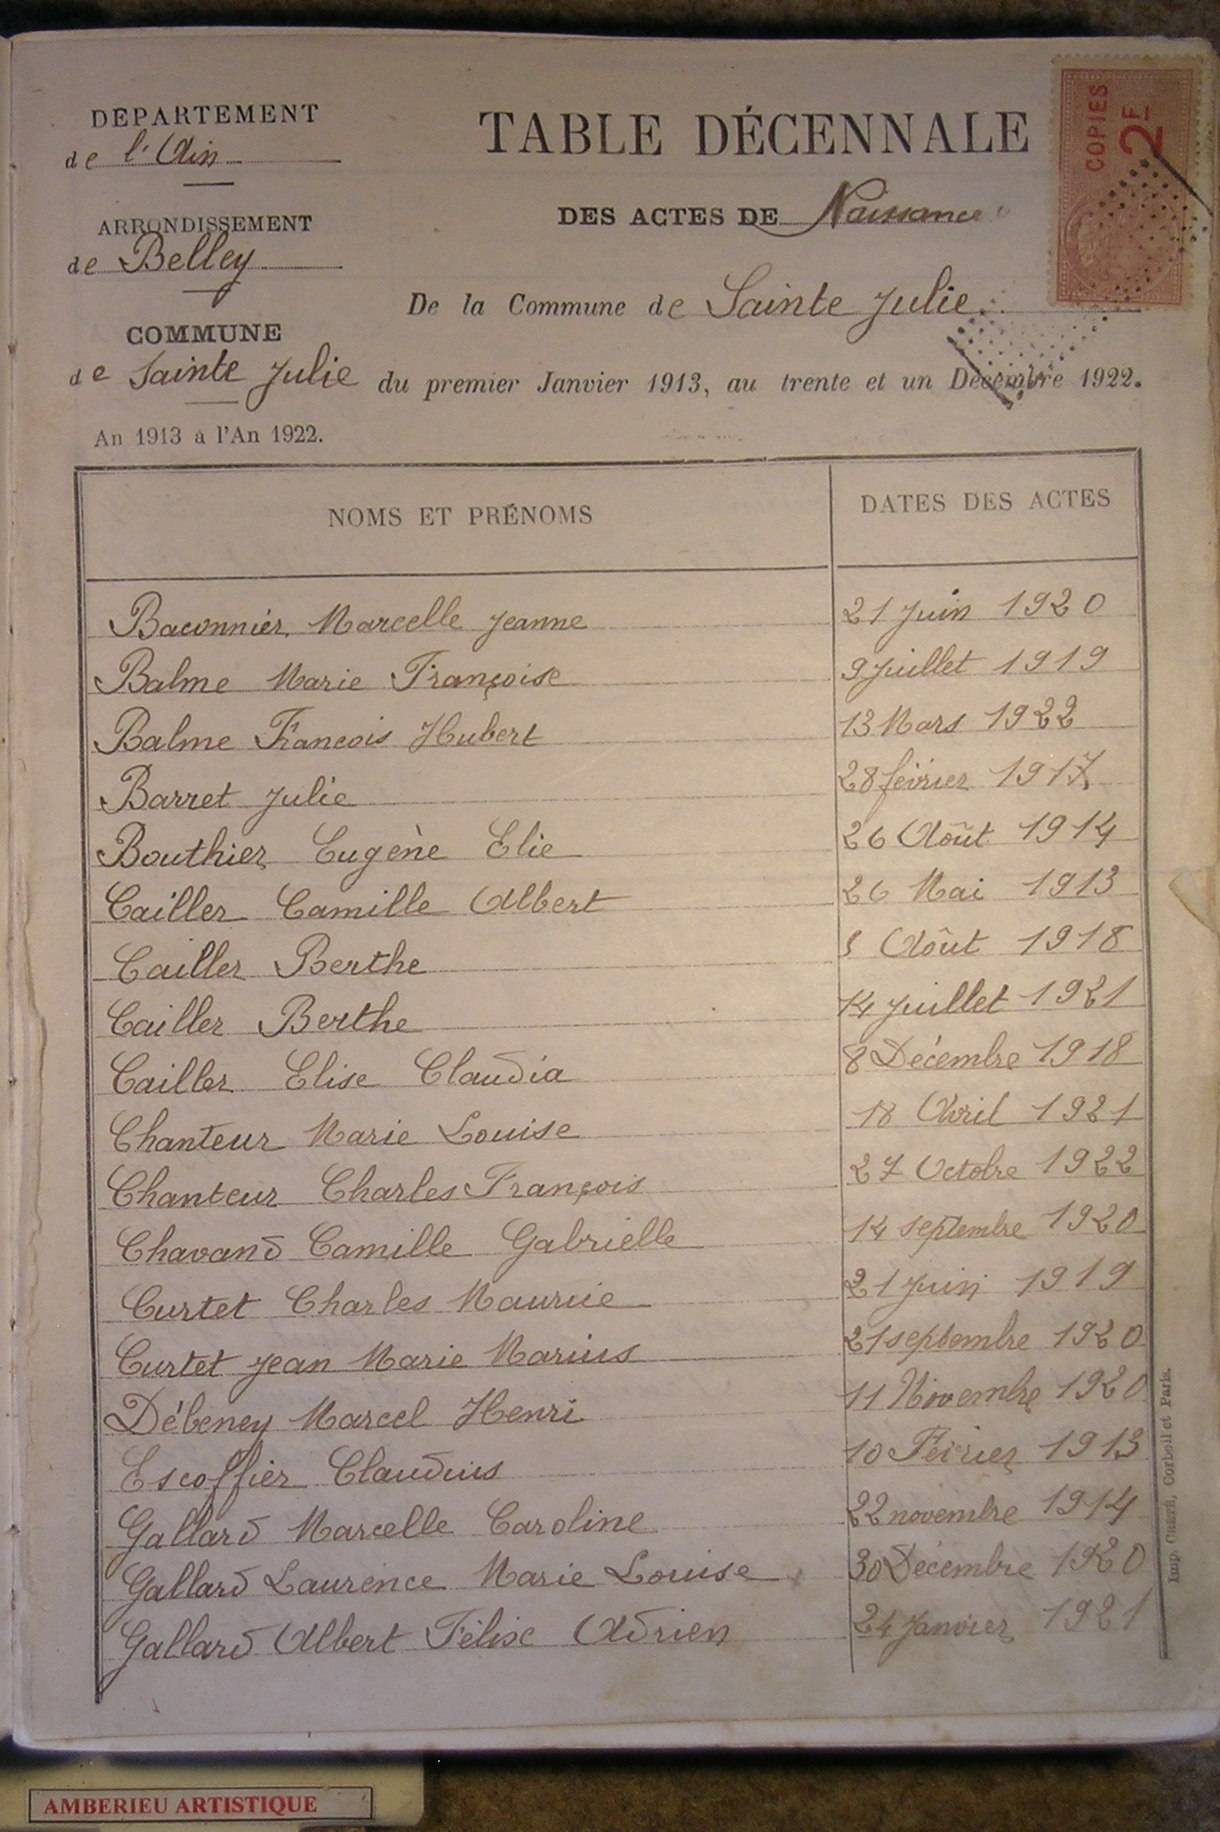 DEPARTEMENT
de l'Ain
ARRONDISSEMENT
de Belley
COMMUNE
de Sainte Julie
An 1913 à l'An 1922.
TABLE DÉCENNALE
DES ACTES DE Naissance
De la Commune de Sainte Julie
du premier Janvier 1913, au trente et un Décembre 1922.
COPIES
2F
NOMS ET PRÉNOMS DATES DES ACTES
Baconnier Marcelle Jeanne 21 Juin 1920
Balme Marie Françoise 9 Juillet 1919
Balme Francois Hubert 13 Mars 1922
Barret Julie 28 février 1917
Bouthier Eugène Elie 26 Août 1914
Cailler Camille Albert 26 Mai 1913
Cailler Berthe Août 1918
Cailler Berthe 14 Juillet 1921
Cailler Elise Claudia 8 Décembre 1918
Chanteur Marie Louise 18 Avril 1921
Chanteur Charles François 27 Octobre 1922
Chavand Camille Gabrielle 14 septembre 1920
Curtet Charles Maurice 21 Juin 1919
Curtet Jean Marie Marius 21 septembre 1920
Débeney Marcel Henri 11 Novembre 1920
Escoffier Claudius 10 Février 1913
Gallard Marcelle Caroline 22 novembre 1914
Gallard Laurence Marie Louise 30 Décembre 1920
Gallard Albert Félix Adrien 24 Janvier 1921
Corbeil et Paris.
AMBERIEU ARTISTIQUE